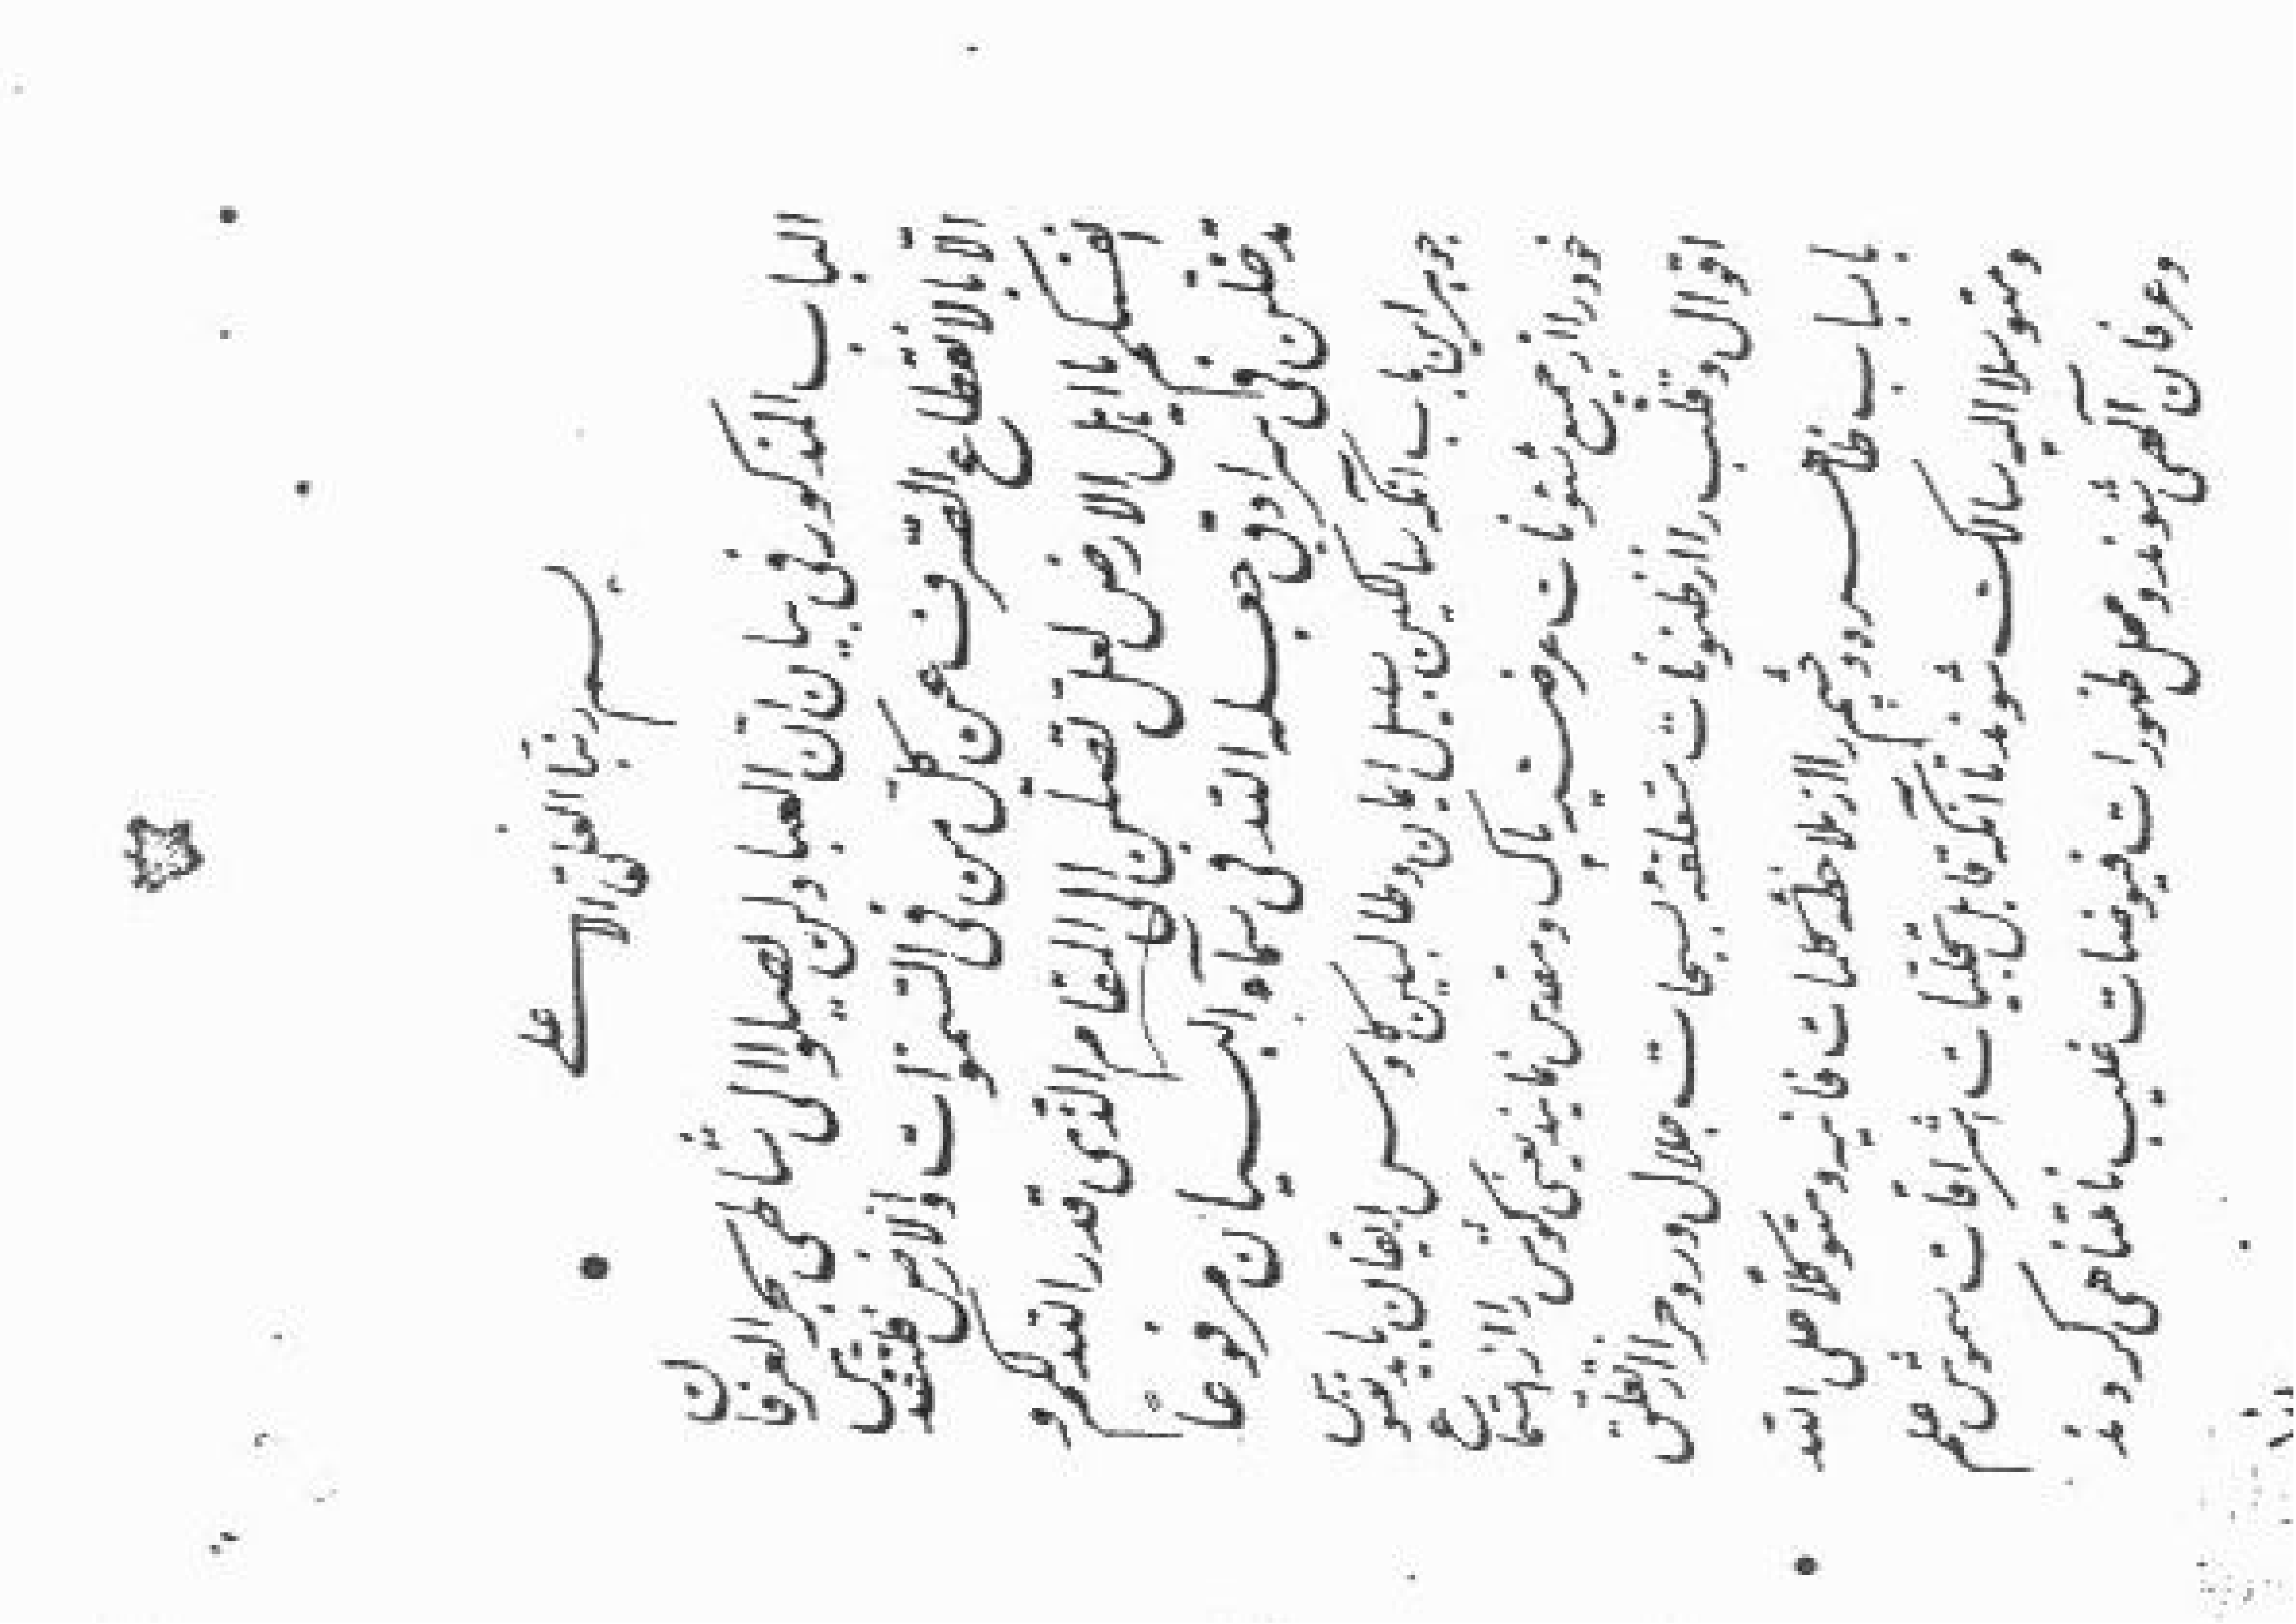 بسم ربنا العلی الاعلی
الباب المذکور فی بیان ان العباد لن یصلوا الی شاطی بحر العرفان
الا بالانقطاع الصرف عن کل من فی السموات والارض قدسوا
انفسکم یا اهل الارض لعل تصلن الی المقام الذی قدر الله لکم و
تدخلن فی سرادق جعله الله فی سماء البیان مرفوعا
جوهر این باب آنکه سالکین سبیل ایمان و طالبین کؤس ایقان باید نفوس
خود را از جمیع شئونات عرضیه پاک و مقدس نمایند یعنی گوش را از استماع
اقوال و قلب را از ظنونات متعلقه بسبحات جلال و روح را از تعلق
باسباب ظاهره و چشم را از ملاحظه کلمات فانیه و متوکلا علی الله
و متوسلا الیه سالک شوند تا آنکه قابل تجلیات اشراقات شموس علم
و عرفان الهی شوند و محل ظهورات فیوضات غیب نامتناهی گردند